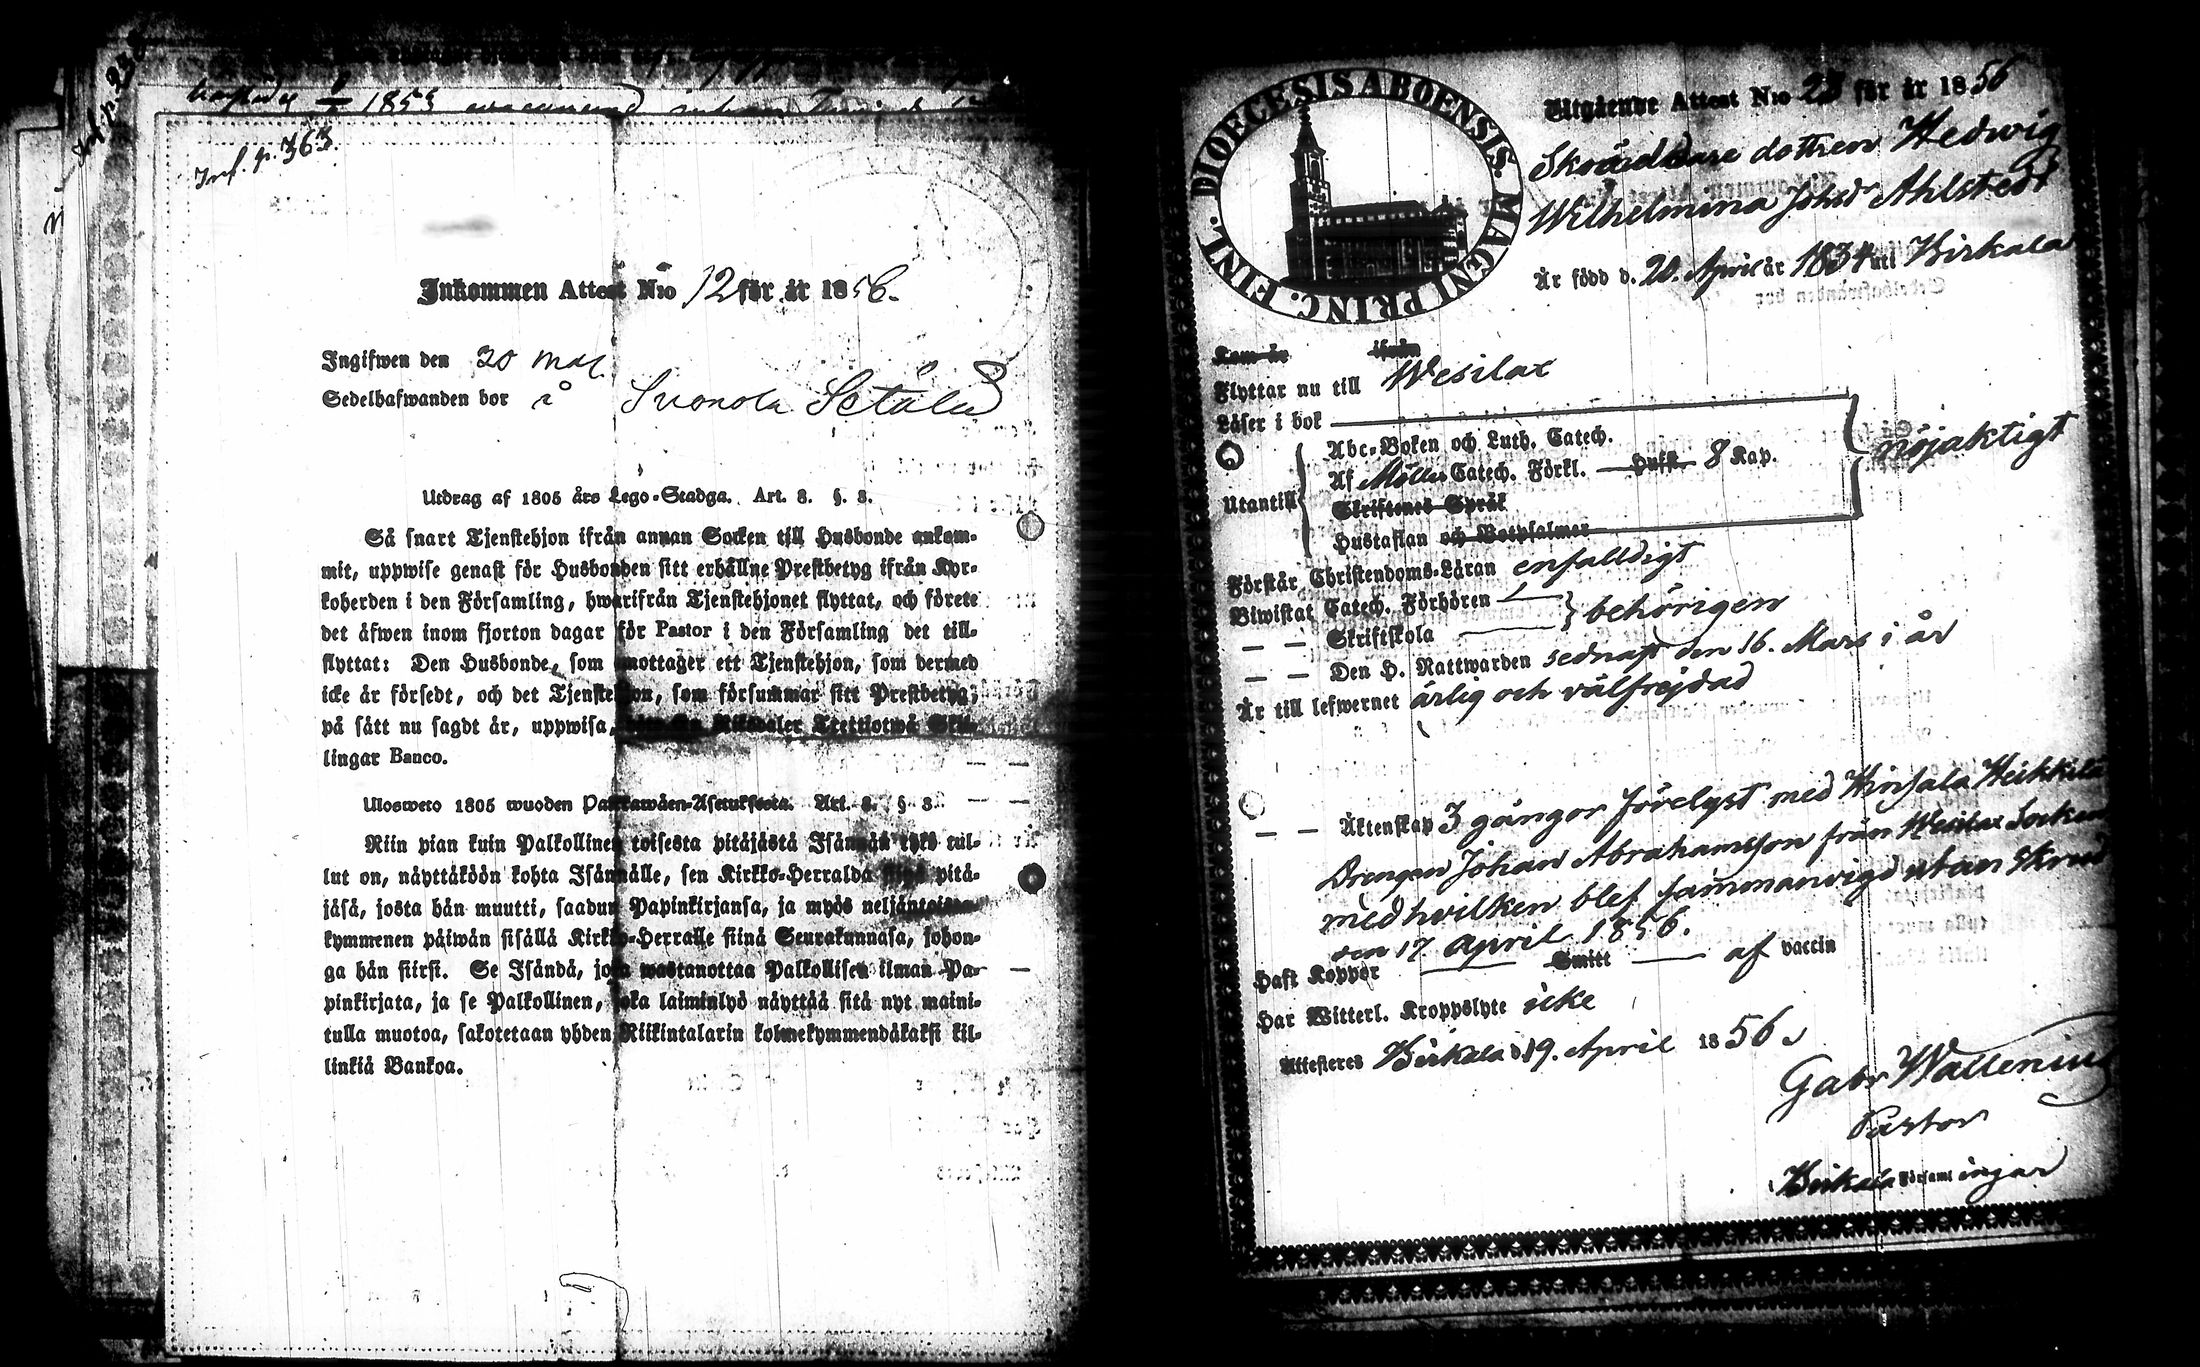 1853
Inf. p. 363.
Inkommen Attest N:o 12 för år 1856.
Ingifwen den 20 Maj
Sedelhafwanden bor i Suonola Setälä
Utdrag af 1805 års Lego-Stadga. Art. 8. §. 8.
Så snart Tjenstehjon ifrån annan Socken till Husbonde ankom-
mit, uppwise genast för Husbonden sitt erhållne Prestbetyg ifrån Kyr-
koherden i den Församling, hwarifrån Tjenstehjonet flyttat, och förete
det äfwen inom fjorton dagar för Pastor i den Församling det till-
flyttat: Den Husbonde, som emottager ett Tjenstehjon, som dermed
icke är försedt, och det Tjenstehjon, som försummar sitt Prestbetyg,
på sätt nu sagdt är, uppwisa, Riksdaler Trettiotwå Skil-
lingar Banco.
Ulosweto 1805 wuoden Palkkawäen-Asetuksesta. Art. 8. § 8.
Niin pian kuin Palkollinen toisesta pitäjästä Isännän tykö tul-
lut on, näyttäköön kohta Isännälle, sen Kirkko-Herralda siinä pitä-
jäsä, josta hän muutti, saadun Papinkirjansa, ja myös neljäntoista-
kymmenen päiwän sisällä Kirkko-Herralle siinä Seurakunnasa, johon-
ga hän siirsi. Se Isändä, joka wastanottaa Palkollisen ilman Pa-
pinkirjata, ja se Palkollinen, joka laiminlyö näyttää sitä nyt maini-
tulla muotoa, sakotetaan yhden Riikintalarin kolmekymmendäkaksi kil-
linkiä Bankoa.
FINL. DIOECESIS ABOENSIS. MAGNI PRINC.
Utgående Attest N:o 23 för år 1856
Skräddare dottren Hedwig
Wilhelmina Johsd:r Ahlstedt
Är född d. 20. April år 1834 uti Birkala
Kom år ifrån
Flyttar nu till Wesilax
Läser i bok
Abc-Boken och Luth. Catech.
Af Möllers Catech. Förkl. Husst. 8 Kap.
nöjaktigt
Utantill
Skriftenes Språk
Hustaflan och Botpsalmer
Förstår Christendoms-Läran enfalldigt
Biwistat Catech. Förhören
behörigen
— — Skriftskola
— — Den H. Nattwarden sednast den 16. Mars i år
Är till lefwernet ärlig och välfrejdad
— — Äktenskap 3 gångor förelyst med Hinsala Heikkilä
Drengen Johan Abrahamsson från Wesilax Socken
med hvilken blef sammanvigd utan skrud
den 17 April 1856.
Haft Koppor Smitt af vaccin
Har Witterl. Kroppslyte icke
Attesteres Birkala d. 19. April 1856
Gabr Wallenius
Pastor
Birkala Församlingar